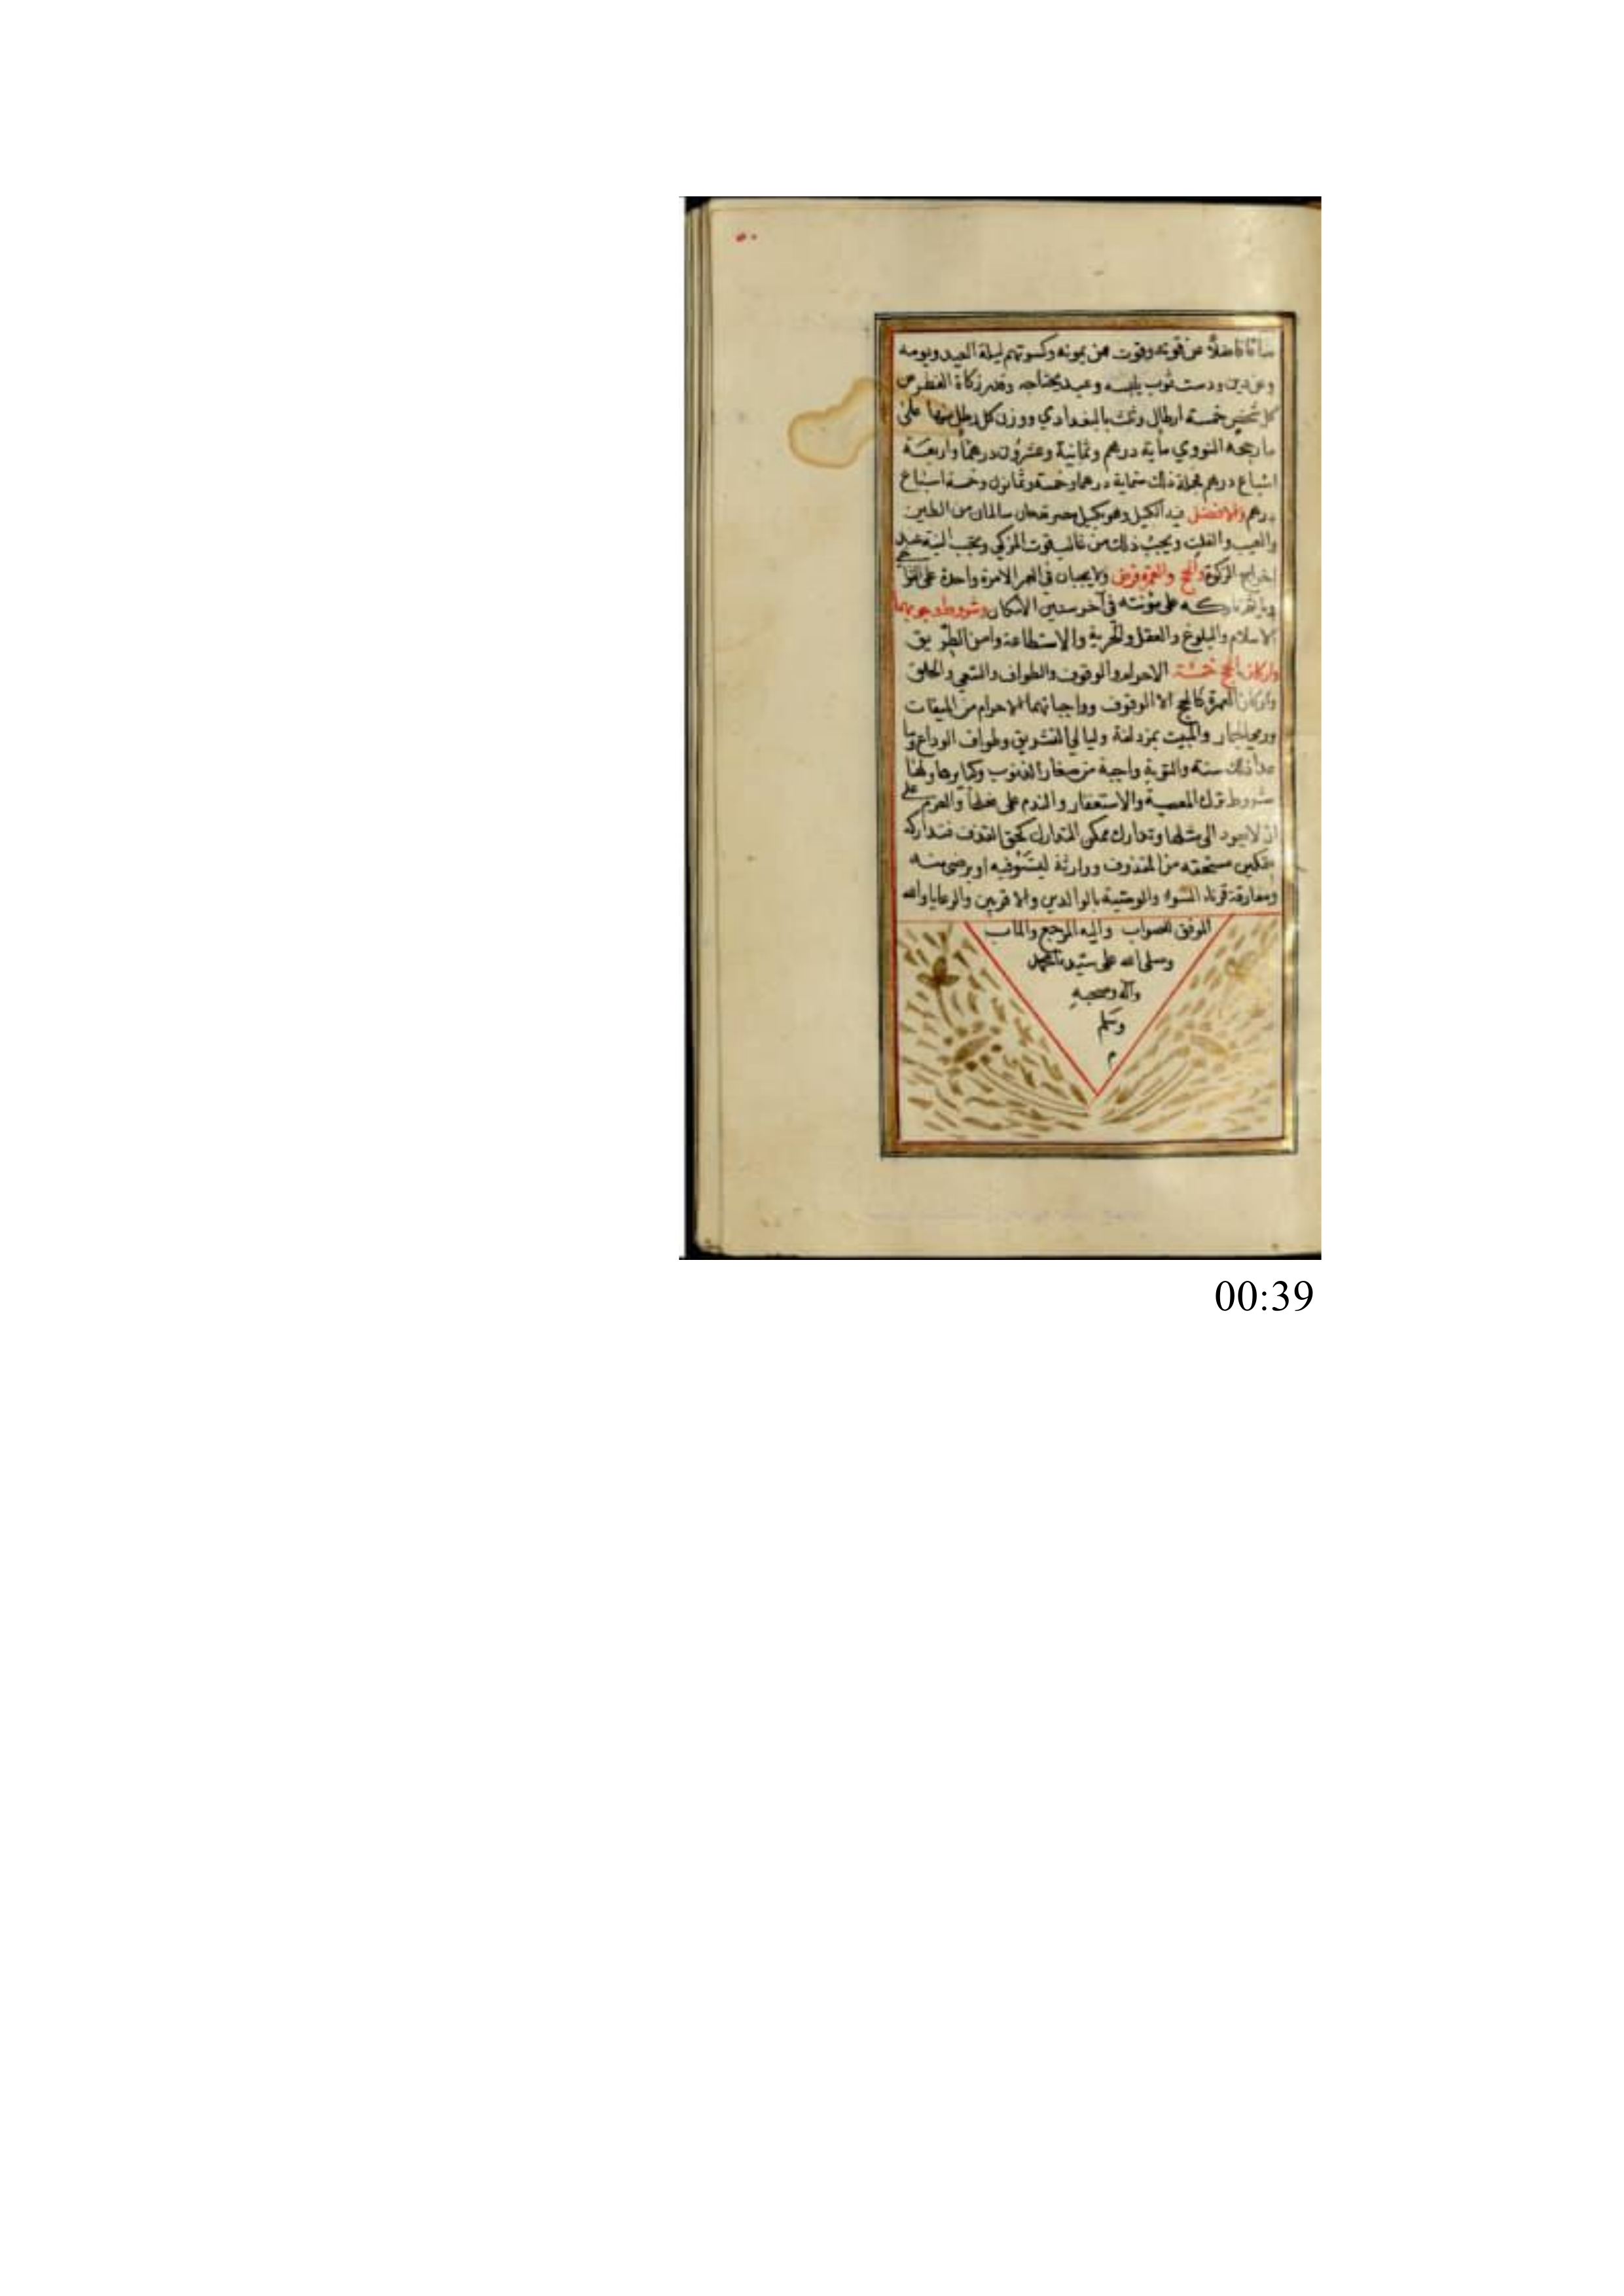 صاعًا فاضلًا عن قوته وقوت من يمونه وكسوتهم ليلة العيد ويومه
وعن دين ودست ثوب يليق به وعبد يحتاجه وقدر زكاة الفطر عن
كل شخص خمسة ارطال وثلث بالبغدادي ووزن كل رطل منها على
ما رجحه النووي ماية درهم وثمانية وعشرون درهما واربعة
اسباع درهم فجملة ذلك ستماية درهم وخمسة وثمانون وخمسة اسباع
درهم والافضل فيه الكيل وهو بكيل مصر قدحان سالمان من الطين
والعيب والغلت ويجب ذلك من غالب قوت المزكي ويجب النية عند
اخراج الزكوة والحج والعمرة فرض ولا يجبان في العمر الا مرة واحدة على التراخي
وياثم تاركه على موته في آخر سنين الامكان وشروط وجوبهما
الاسلام والبلوغ والعقل والحرية والاستطاعة وامن الطريق
واركان الحج خمسة الاحرام والوقوف والطواف والسعي والحلق
واركان العمرة كالحج الا الوقوف وواجباتهما الاحرام من الميقات
ورمي الجمار والمبيت بمزدلفة وليالي التشريق وطواف الوداع وما
عدا ذلك سنة والتوبة واجبة من صغار الذنوب وكبايرها ولها
شروط ترك المعصية والاستغفار والندم على فعلها والعزم على
ان لا يعود الى مثلها وتدارك ممكن التدارك كحق القذف فتداركه
بتمكين مستحقه من المقذوف ووارثه ليستوفيه او يرضى منه
ومفارقة قرناء السوء والوصية بالوالدين والاقربين والرعايا والله
الموفق للصواب واليه المرجع والماب
وصلى الله على سيدنا محمد
وآله وصحبه
وسلم
م
00:39